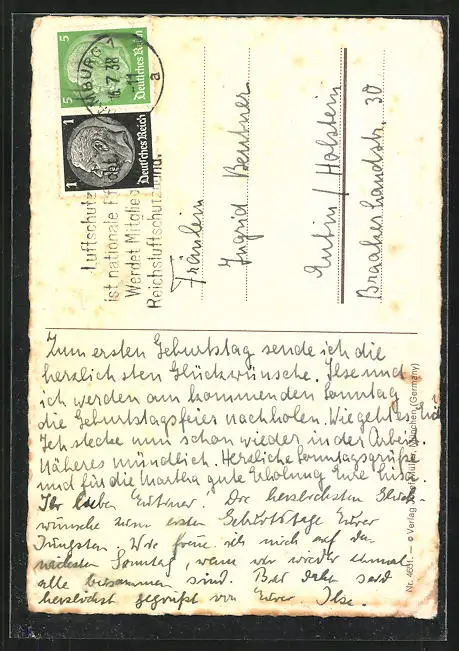 5 5
Deutsches Reich
1 1
Deutsches Reich
BURG 7
16.7.38
a
Luftschutz
ist nationale Pflicht
Werdet Mitglied
Reichsluftschutzbund.
Fräulein
Ingrid Beutner
Eutin / Holstein
Braaker Landstr. 30
Zum ersten Geburtstag sende ich die
herzlichsten Glückwünsche. Ilse und
ich werden am kommenden Sonntag
die Geburtstagsfeier nachholen. Wie geht es
Ich stecke nun schon wieder in der Arbeit.
Näheres mündlich. Herzliche Sonntagsgrüße
und für die Martha gute Erholung Eure
Ihr lieben Beutner! Die herzlichsten Glück-
wünsche zum ersten Geburtstage Eurer
Jüngsten. Wie freue ich mich auf den
nächsten Sonntag, wenn wir wieder einmal
alle beisammen sind. Bis dahin seid
herzlichst gegrüßt von Eurer Ilse.
Nr. 4691. — © Verlag München (Germany)